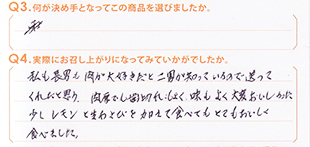 Q3.何が決め手となってこの商品を選びましたか。
Q4.実際にお召し上がりになってみていかがでしたか。
私も長男も肉が大好きだと二男が知っているので送って
くれたと思う 肉厚で歯切れもよく、味もよく大変おいしかった
少しレモンと生わさびを加えて食べてもとてもおいしく
食べました。